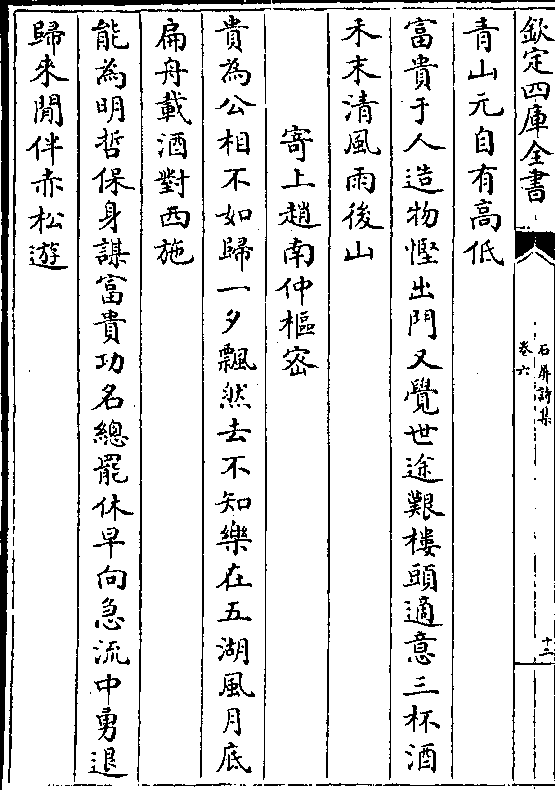 欽定四庫全書
石屏詩集
卷六
十二
青山元自有高低
富貴于人造物慳出門又覺世途艱樓頭適意三杯酒
禾末清風雨後山
寄上趙南仲樞宻
貴為公相不如歸一夕飄然去不知樂在五湖風月底
扁舟載酒對西施
能為明哲保身謀富貴功名總罷休早向急流中勇退
歸來閒伴赤松遊